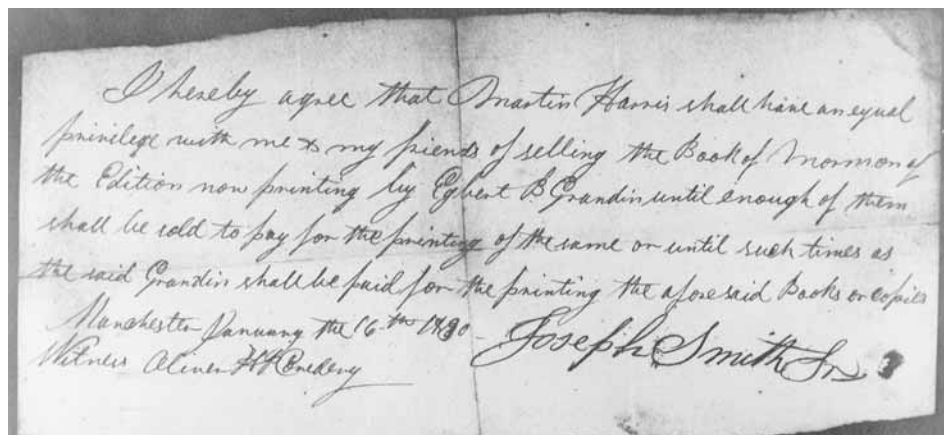 I hereby agree that Martin Harris shall have an equal
privilege with me & my friends of selling the Book of Mormon of
the Edition now printing by Egbert B Grandin until enough of them
shall be sold to pay for the printing of the same or until such times as
the said Grandin shall be paid for the printing the aforesaid Books or copies
Manchester January the 16th 1830—
Joseph Smith Sr
Witness Oliver H P Cowdery